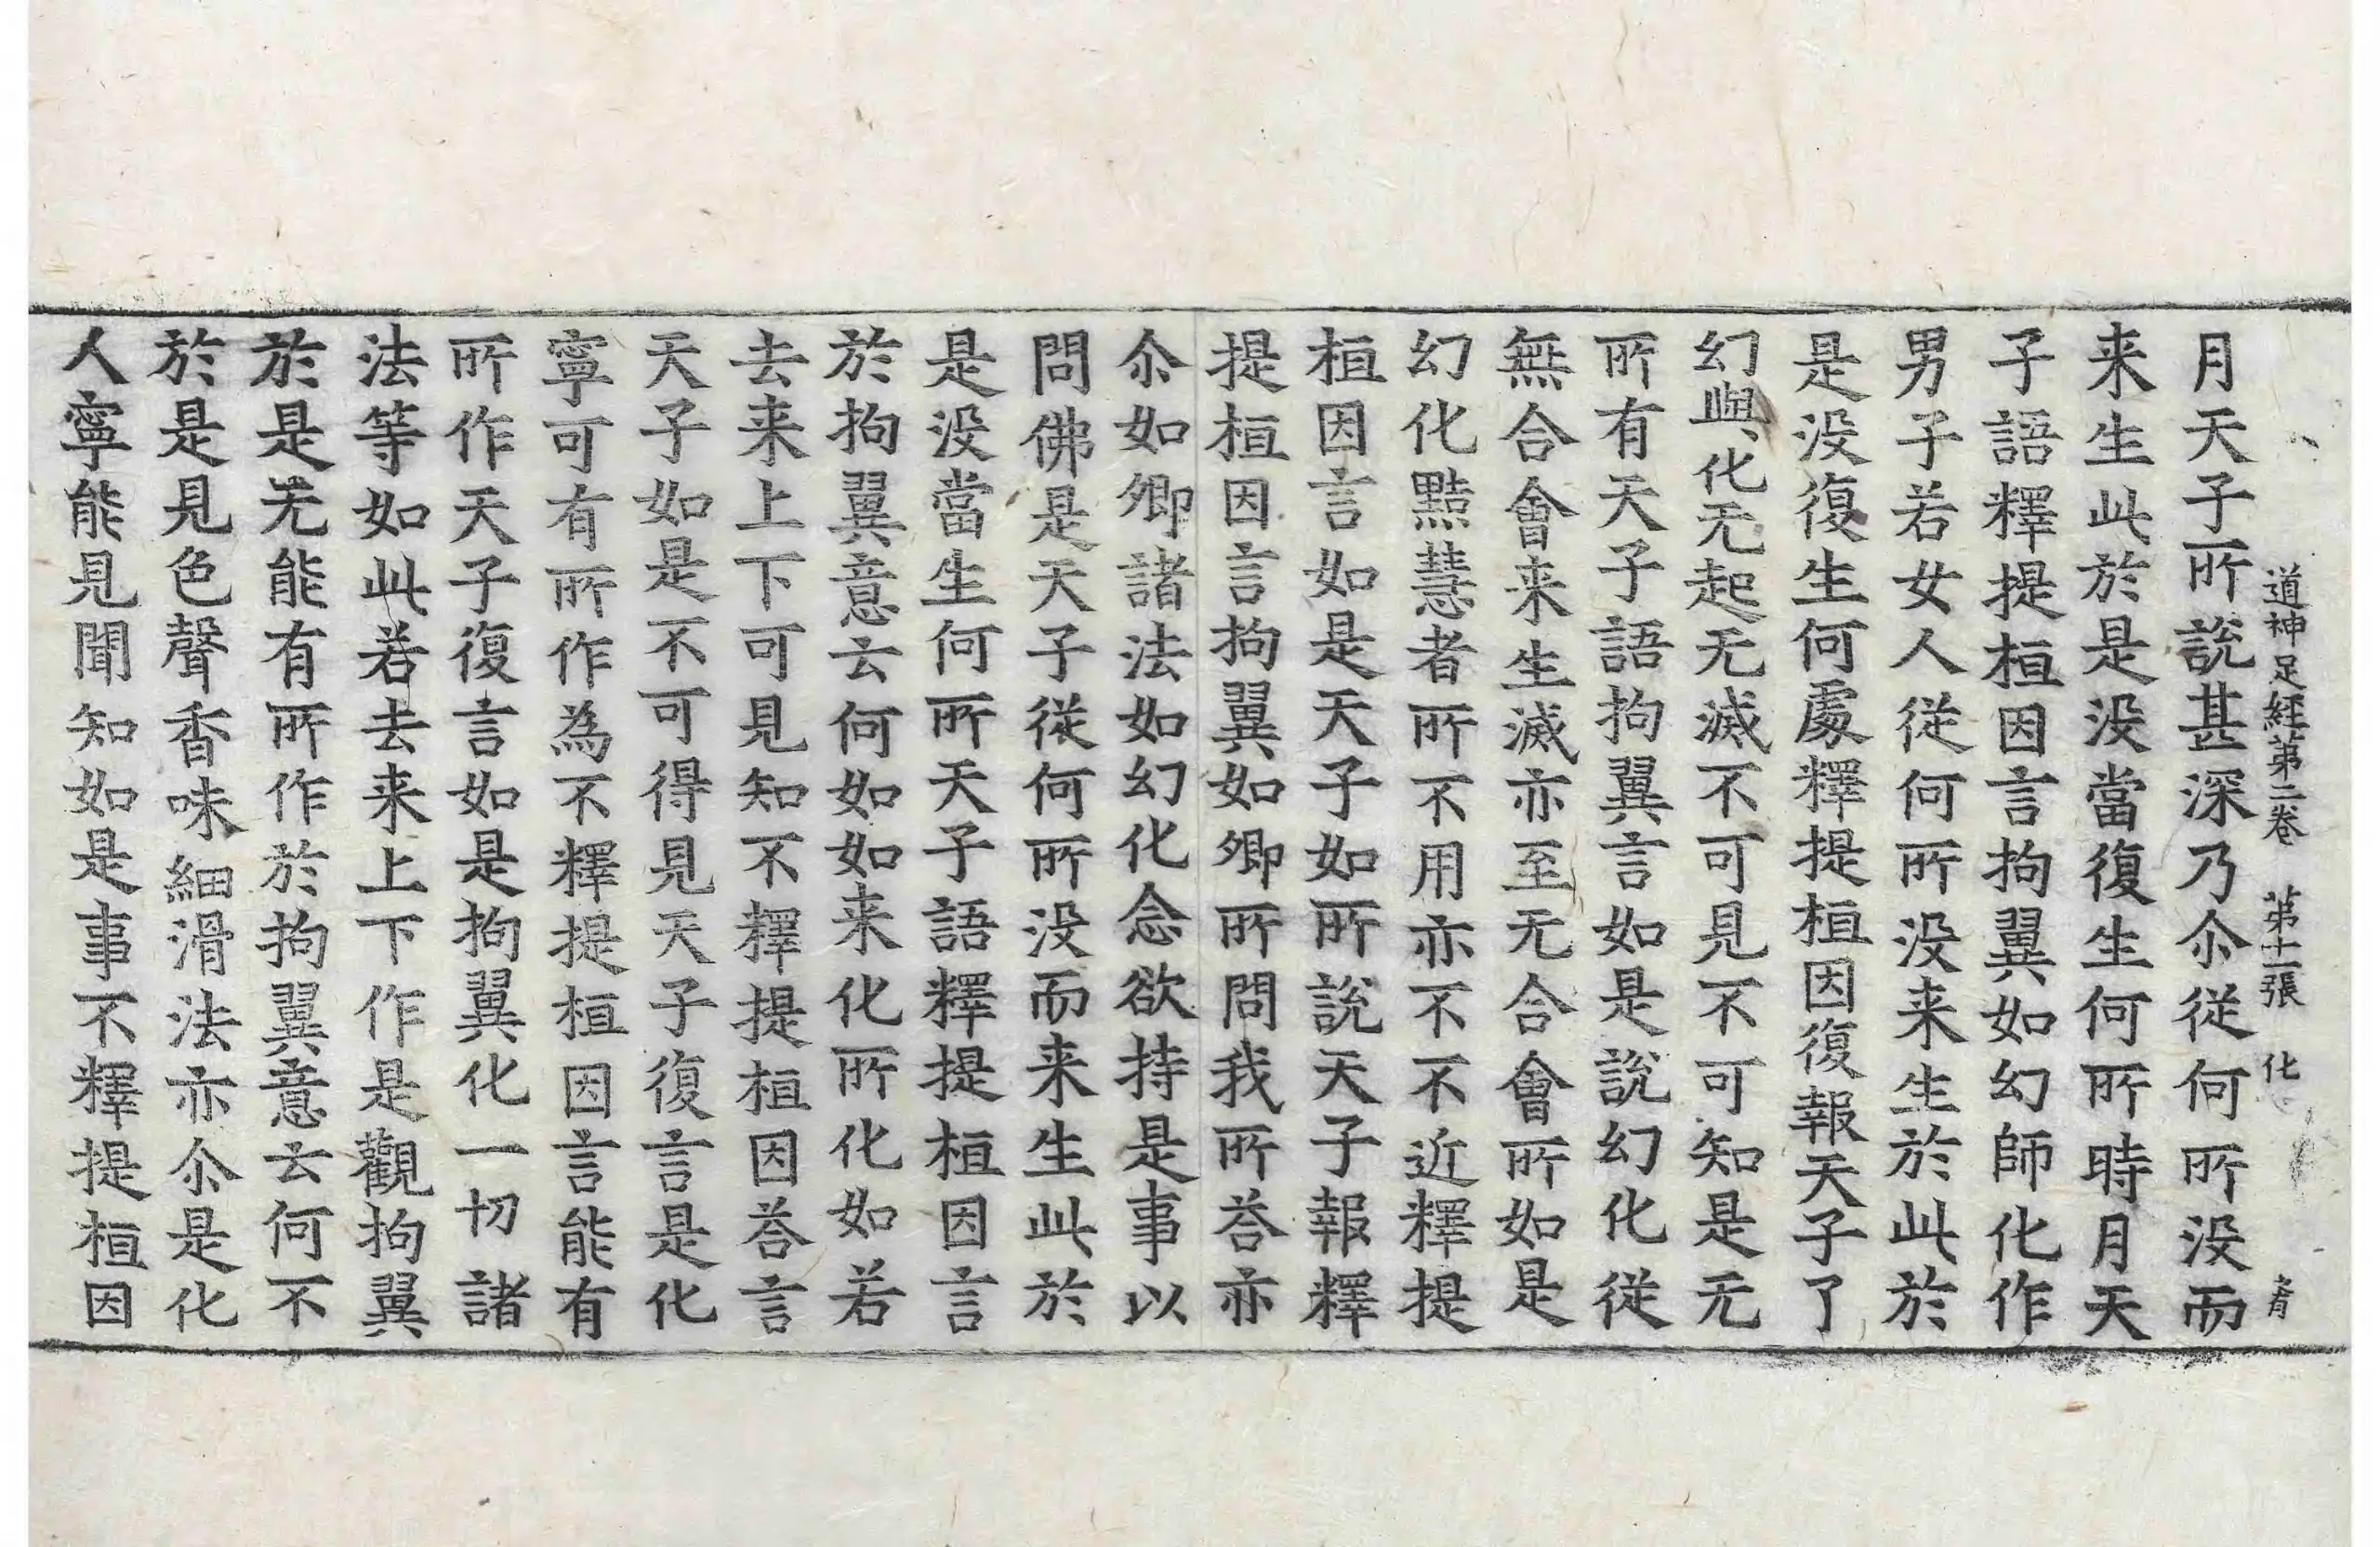 道神足経第二卷　第十一張　化
月天子所說甚深乃尒従何所没而
来生此於是没當復生何所時月天
子語釋提桓因言拘翼如幻師化作
男子若女人従何所没来生於此於
是没復生何處釋提桓因復報天子了
幻與化无起无滅不可見不可知是无
所有天子語拘翼言如是說幻化従
無合會来生滅亦至无合會所如是
幻化黠慧者所不用亦不不近釋提
桓因言如是天子如所說天子報釋
提桓因言拘翼如卿所問我所荅亦
尒如卿諸法如幻化念欲持是事以
問佛是天子従何所没而来生此於
是没當生何所天子語釋提桓因言
於拘翼意云何如如来化所化如若
去来上下可見知不釋提桓因荅言
天子如是不可得見天子復言是化
寧可有所作為不釋提桓因言能有
所作天子復言如是拘翼化一切諸
法等如此若去来上下作是觀拘翼
於是无能有所作於拘翼意云何不
於是見色聲香味細滑法亦尒是化
人寧能見聞知如是事不釋提桓因